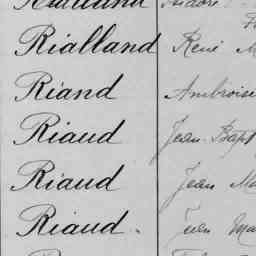 Rialland René
Riand Ambroise
Riaud Jean Bapt
Riaud Jean Ma
Riaud. Jean Ma